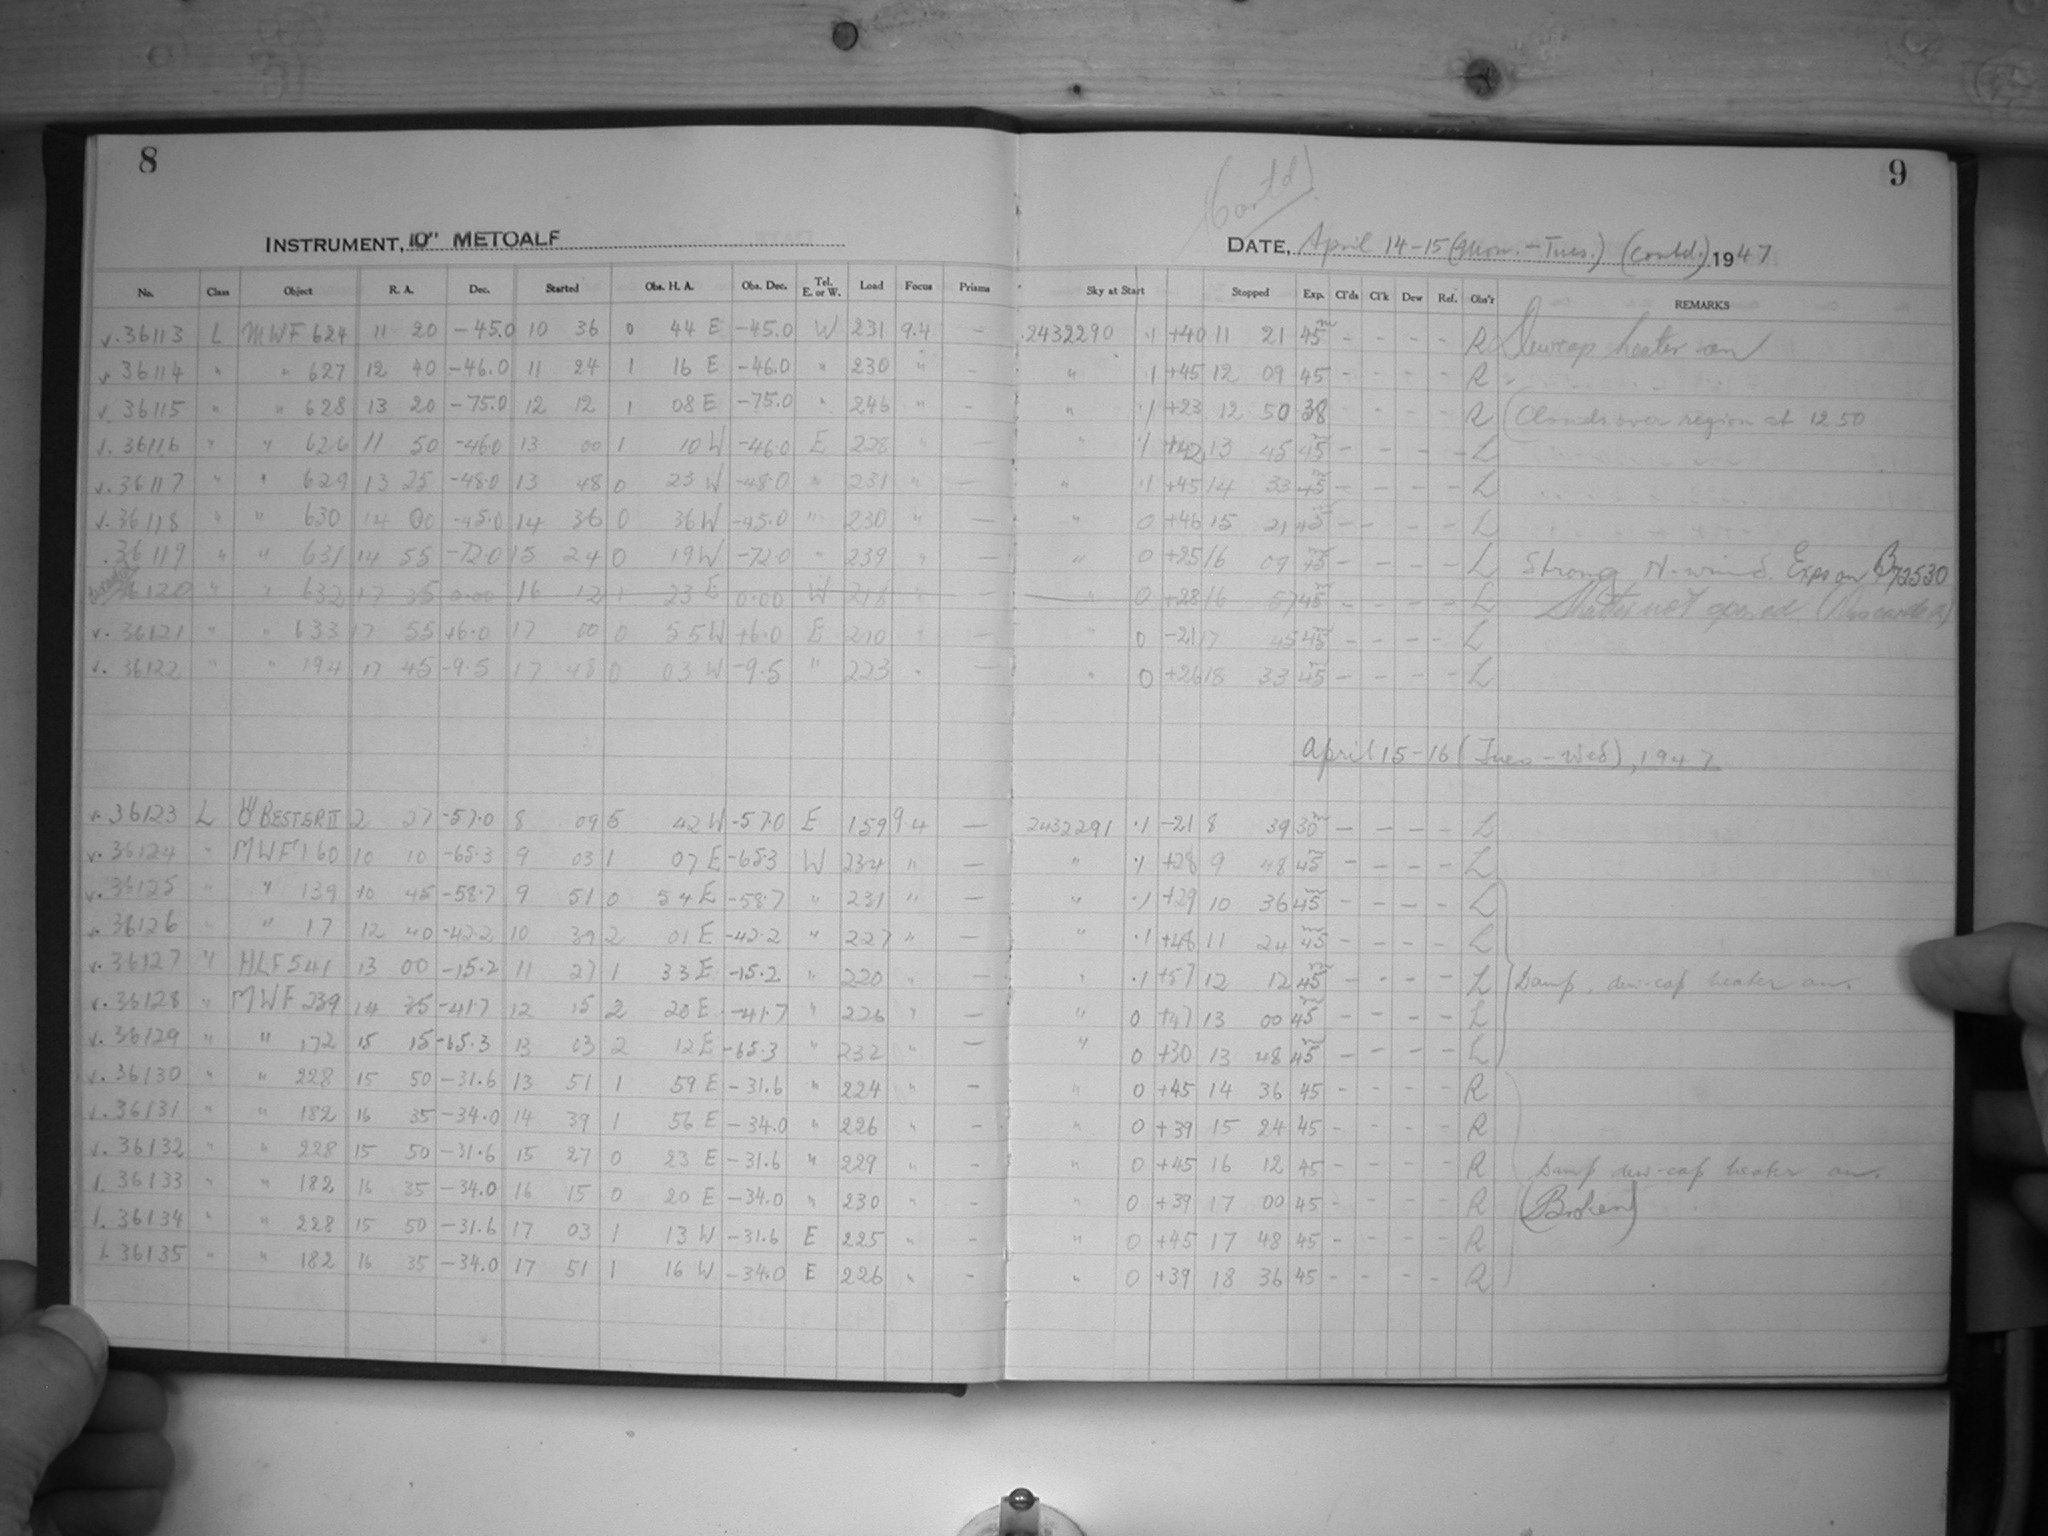 8
9
(Contd)
INSTRUMENT, 10" METCALF
DATE, April 14-15 (Mon.-Tues.) (contd.) 1947
No. Class Object R. A. Dec. Started Obs. H. A. Obs. Dec. Tel. E. or W. Load Focus Prisms Sky at Start Stopped Exp. Cl'ds Cl'k Dew Ref. Obs'r REMARKS
v. 36113 L MWF 624 11 20 -45.0 10 36 0 44 E -45.0 W 231 9.4 - 2432290 .1 +40 11 21 45m - - - - R Dewcap heater on
v 36114 " " 627 12 40 -46.0 11 24 1 16 E -46.0 " 230 " - " .1 +45 12 09 45 - - - - R
v 36115 " " 628 13 20 -75.0 12 12 1 08 E -75.0 " 246 " - " .1 +23 12 50 38 R (Clouds over region at 12 50
36116 " " 626 11 50 -46.0 13 00 1 10 W -46.0 E 228 " - " .1 +42 13 45 45m - - - - L
v. 36117 " " 629 13 25 -48.0 13 48 0 23 W -48.0 " 231 " - " .1 +45 14 33 45m - - - - L
v. 36118 " " 630 14 00 -45.0 14 36 0 36 W -45.0 " 230 " - " 0 +46 15 21 45m - - - - L
36119 " " 631 14 55 -72.0 15 24 0 19 W -72.0 " 239 " - " 0 +25 16 09 45m - - - - L Strong N-wind. Expo on B72530
36120 " " 632 17 35 0.00 16 12 1 23 E 0.00 W 218 " - " 0 +28 16 57 45m - - - - L Shutter not opened. (Discarded)
v. 36121 " " 633 17 55 +6.0 17 00 0 55 W +6.0 E 210 - " 0 -21 17 45 45m - - - - L
v. 36122 " " 194 17 45 -9.5 17 48 0 03 W -9.5 " 223 " - " 0 +26 18 33 45m - - - - L
April 15-16 (Tues-Wed), 1947
v. 36123 L BESTER II 2 27 -57.0 8 09 5 42 W -57.0 E 159 9.4 - 2432291 .1 -21 8 39 30m - - - - L
v. 36124 " MWF 160 10 10 -65.3 9 03 1 07 E -65.3 W 234 " - " .1 +28 9 48 45m - - - - L
v. 36125 " " 139 10 45 -58.7 9 51 0 54 E -58.7 " 231 " - " .1 +29 10 36 45m - - - - L
v. 36126 " " 17 12 40 -42.2 10 39 2 01 E -42.2 " 227 " - " .1 +48 11 24 45m - - - - L
v. 36127 " HLF 541 13 00 -15.2 11 27 1 33 E -15.2 " 220 " - " .1 +57 12 12 45m - - - - L Damp, dew-cap heater on.
v. 36128 " MWF 239 14 35 -41.7 12 15 2 20 E -41.7 " 226 " - " 0 +47 13 00 45m - - - - L
v. 36129 " " 172 15 15 -65.3 13 03 2 12 E -65.3 " 232 " - " 0 +30 13 48 45m - - - - L
v. 36130 " " 228 15 50 -31.6 13 51 1 59 E -31.6 " 224 " - " 0 +45 14 36 45 - - - - R
v. 36131 " " 182 16 35 -34.0 14 39 1 56 E -34.0 " 226 " - " 0 +39 15 24 45 - - - - R
v. 36132 " " 228 15 50 -31.6 15 27 0 23 E -31.6 " 229 " - " 0 +45 16 12 45 - - - - R Damp dew-cap heater on.
36133 " " 182 16 35 -34.0 16 15 0 20 E -34.0 " 230 " - " 0 +39 17 00 45 - - - - R (Broken)
36134 " " 228 15 50 -31.6 17 03 1 13 W -31.6 E 225 " - " 0 +45 17 48 45 - - - - R
36135 " " 182 16 35 -34.0 17 51 1 16 W -34.0 E 226 " - " 0 +39 18 36 45 - - - - R